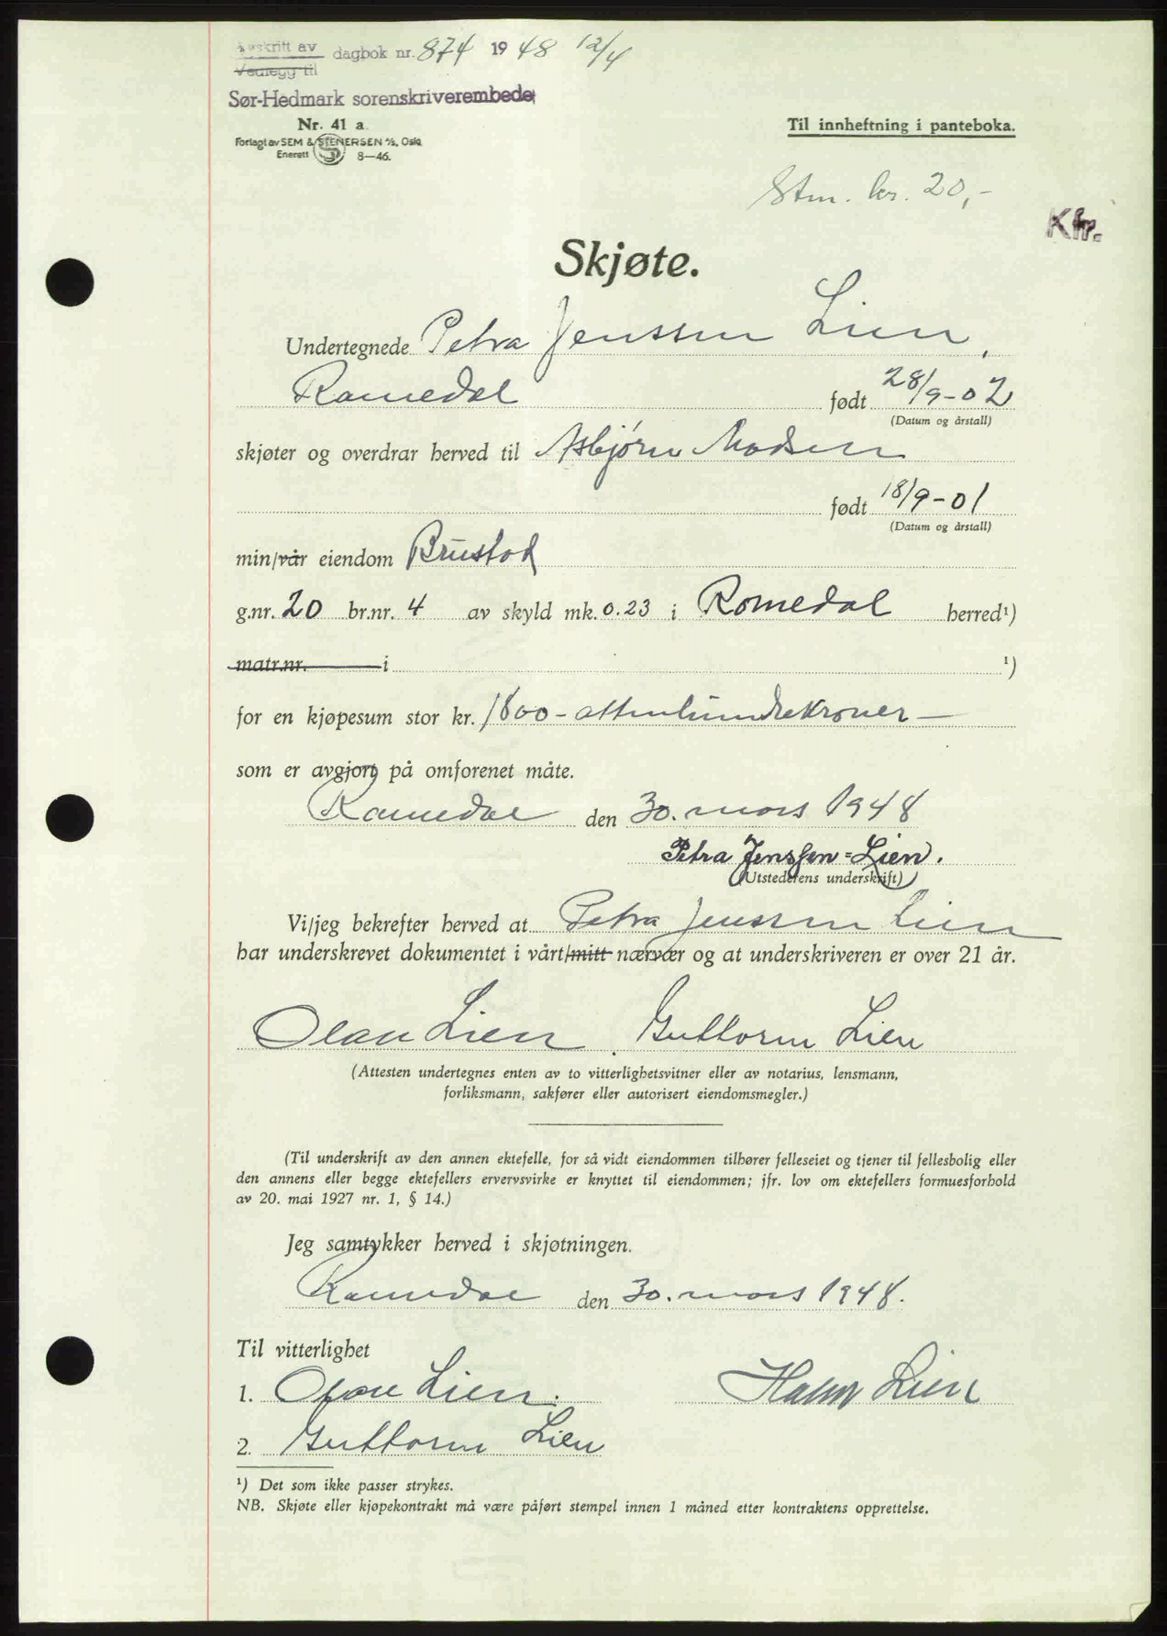 Avskritt av
Vedlegg til dagbok nr. 874 1948 12/4
Sør-Hedmark sorenskriverembede
Nr. 41 a
Forlagt av SEM & STENERSEN A/S, Oslo
Enerett 8—46.
Til innheftning i panteboka.
Stm. kr. 20,-
Kfr.
Skjøte.
Undertegnede Petra Jenssen Lien,
Romedal født 28/9-02
(Datum og årstall)
skjøter og overdrar herved til Asbjørn Madsen
født 18/9-01
(Datum og årstall)
min/vår eiendom Brustad
g.nr. 20 br.nr. 4 av skyld mk. 0.23 i Romedal herred¹)
matr.nr. i ¹)
for en kjøpesum stor kr. 1800 - attenhundrekroner —
som er avgjort på omforenet måte.
Romedal den 30. mars 1948
Petra Jenssen=Lien.
(Utstederens underskrift)
Vi/jeg bekrefter herved at Petra Jenssen Lien
har underskrevet dokumentet i vårt/mitt nærvær og at underskriveren er over 21 år.
Olav Lien. Guttorm Lien
(Attesten undertegnes enten av to vitterlighetsvitner eller av notarius, lensmann,
forliksmann, sakfører eller autorisert eiendomsmegler.)
(Til underskrift av den annen ektefelle, for så vidt eiendommen tilhører felleseiet og tjener til fellesbolig eller
den annens eller begge ektefellers ervervsvirke er knyttet til eiendommen; jfr. lov om ektefellers formuesforhold
av 20. mai 1927 nr. 1, § 14.)
Jeg samtykker herved i skjøtningen.
Romedal den 30. mars 1948.
Til vitterlighet
1. Olav Lien. Lien
2. Guttorm Lien
¹) Det som ikke passer strykes.
NB. Skjøte eller kjøpekontrakt må være påført stempel innen 1 måned etter kontraktens opprettelse.